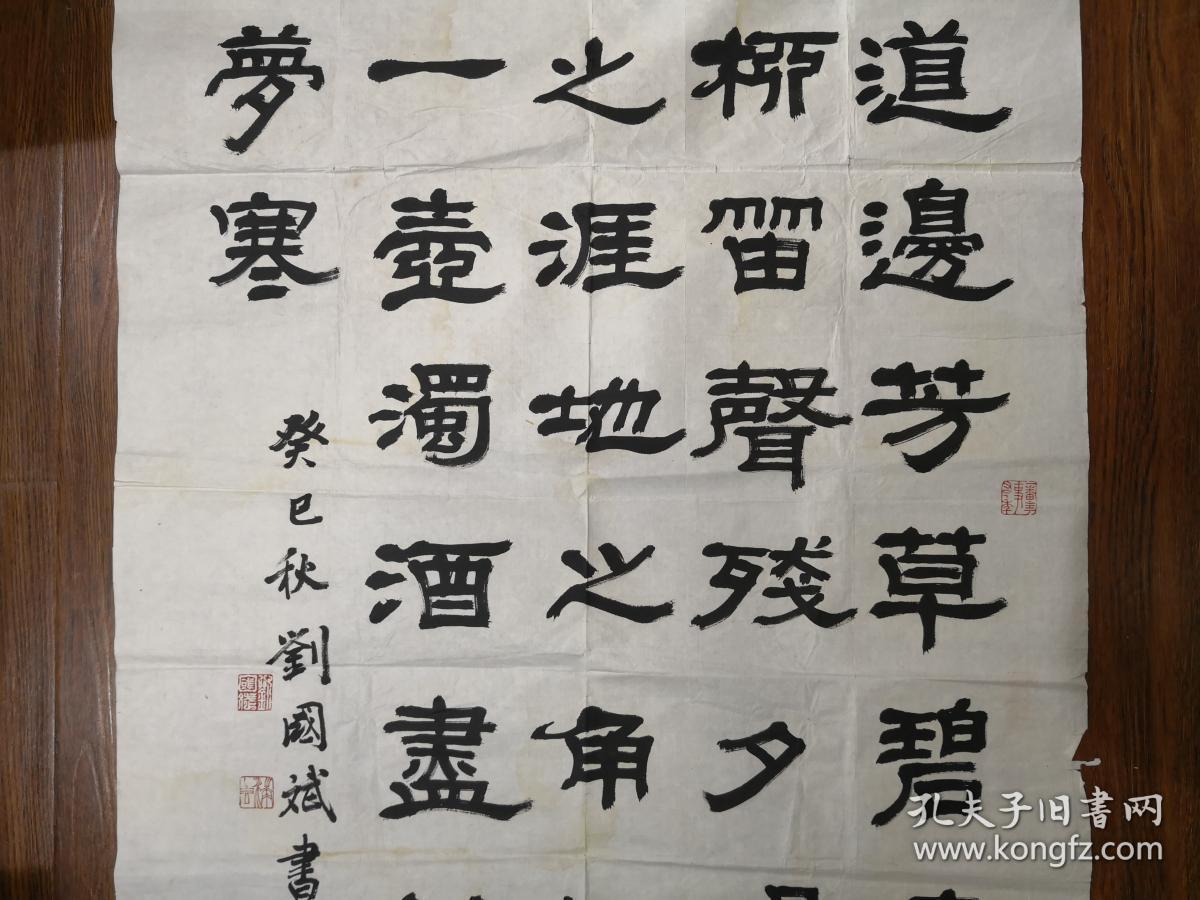 道邊芳草碧
柳笛聲殘夕
之涯地之角
一壺濁酒盡
夢寒
癸巳秋劉國斌書
孔夫子旧書网
www.kongfz.com